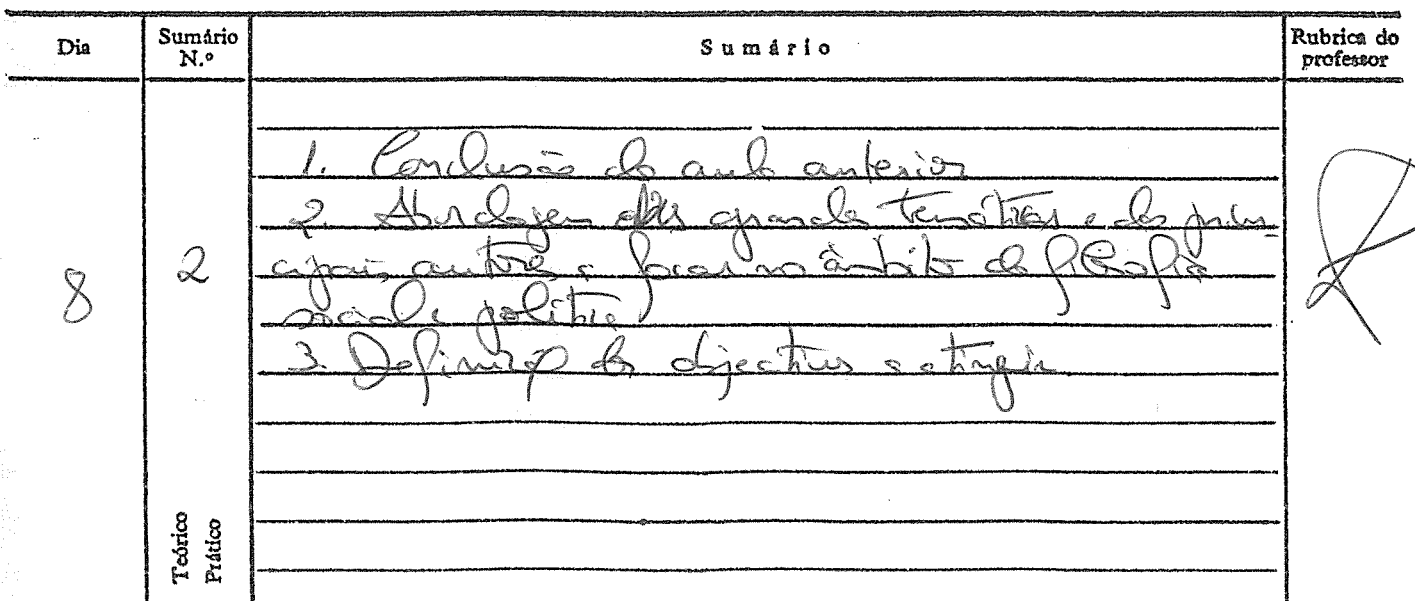 Dia
Sumário
N.º
Sumário
Rubrica do
professor
8
2
1. Conclusão da aula anterior
2. Abordagem das grandes temáticas e dos prin-
cipais autores a focar no âmbito da filosofia
social e política
3. Definição dos objectivos a atingir
Teórico
Prático